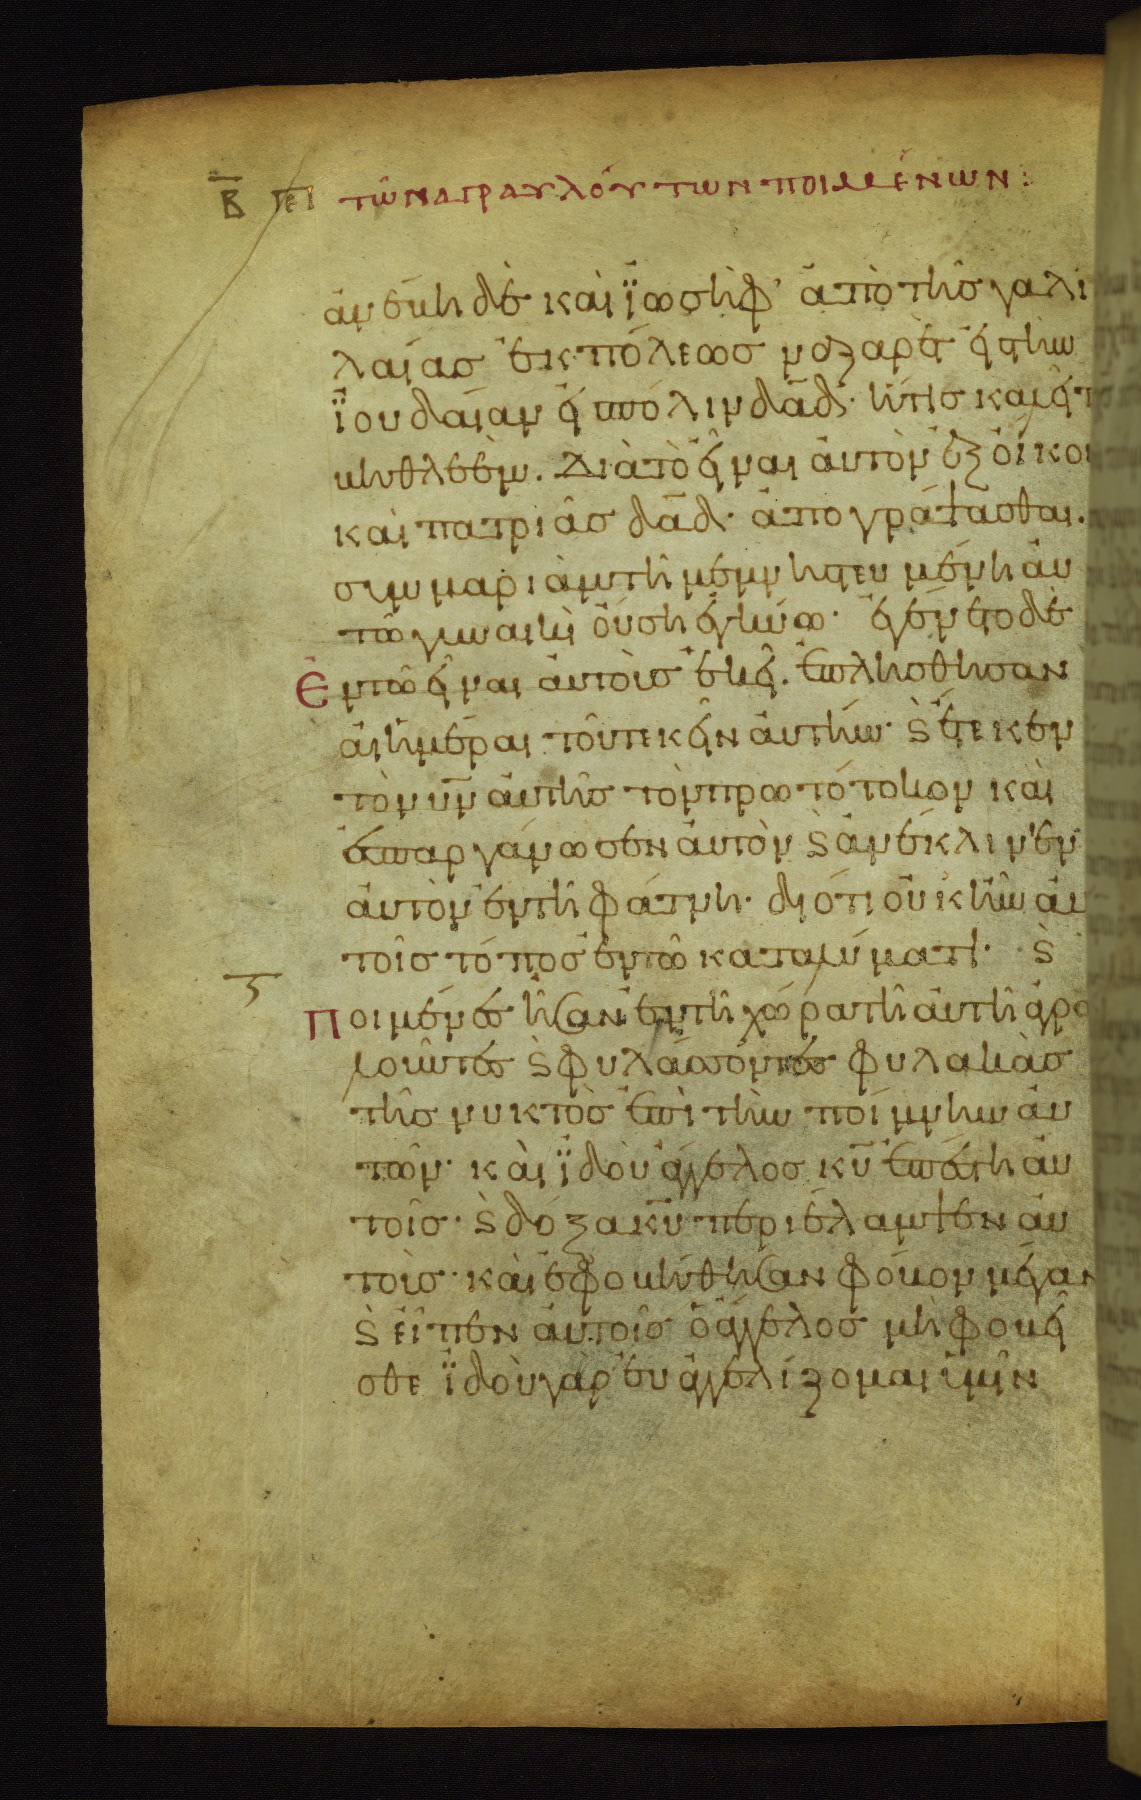 Β̅ Πε̅ρι τῶν ἀγραυλού των ποιμένων:
ἀνέβη δὲ καὶ ἰωσὴφ ἀπὸ τῆς γαλι
λαίας ἐκ πόλεως ναζαρὲτ εἰς τὴν
ἰουδαίαν εἰς πόλιν δα̅δ· ἥτις καλεῖτ
βηθλεέμ. Διὰ τὸ εἶναι αὐτὸν ἐξ οἴκου
καὶ πατριᾶς δα̅δ· ἀπογράψασθαι.
σὺν μαριὰμ τῆ μεμνηστευμένη αὐ
τῶ γυναικὶ οὔση ἐγκύω· ἐγένετο δὲ
Ἐν τῶ εἶναι αὐτοὺς ἐκεῖ. ἐπλήσθησαν
αἱ ἡμέραι τοῦ τεκεῖν αὐτήν· ϗ ἔτεκεν
τὸν υ̅ν αὐτῆς τὸν πρωτότοκον καὶ
ἐσπαργάνωσεν αὐτὸν ϗ ἀνέκλινεν
αὐτὸν ἐν τῆ φάτνη· διότι οὐκ ἦν αὐ
τοῖς τόπος ἐν τῶ καταλύματι· ϗ
ς̅ Ποιμένες ἦσαν ἐν τῆ χώρα τῆ αὐτῆ ἀγρα
λουντες ϗ φυλάσσοντες φυλακὰς
τῆς νυκτὸς ἐπὶ τὴν ποίμνην αὐ
τῶν· καὶ ἰδοὺ ἄγγελος κ̅υ ἐπέστη αὐ
τοῖς· ϗ δόξα κ̅υ περιέλαμψεν αὐ
τοὺς· καὶ ἐφοβήθησαν φόβον μέγαν
ϗ εἶπεν αὐτοῖς ὁ ἄγγελος μὴ φοβεῖ
σθε ἰδοὺ γὰρ εὐαγγελίζομαι ὑμῖν